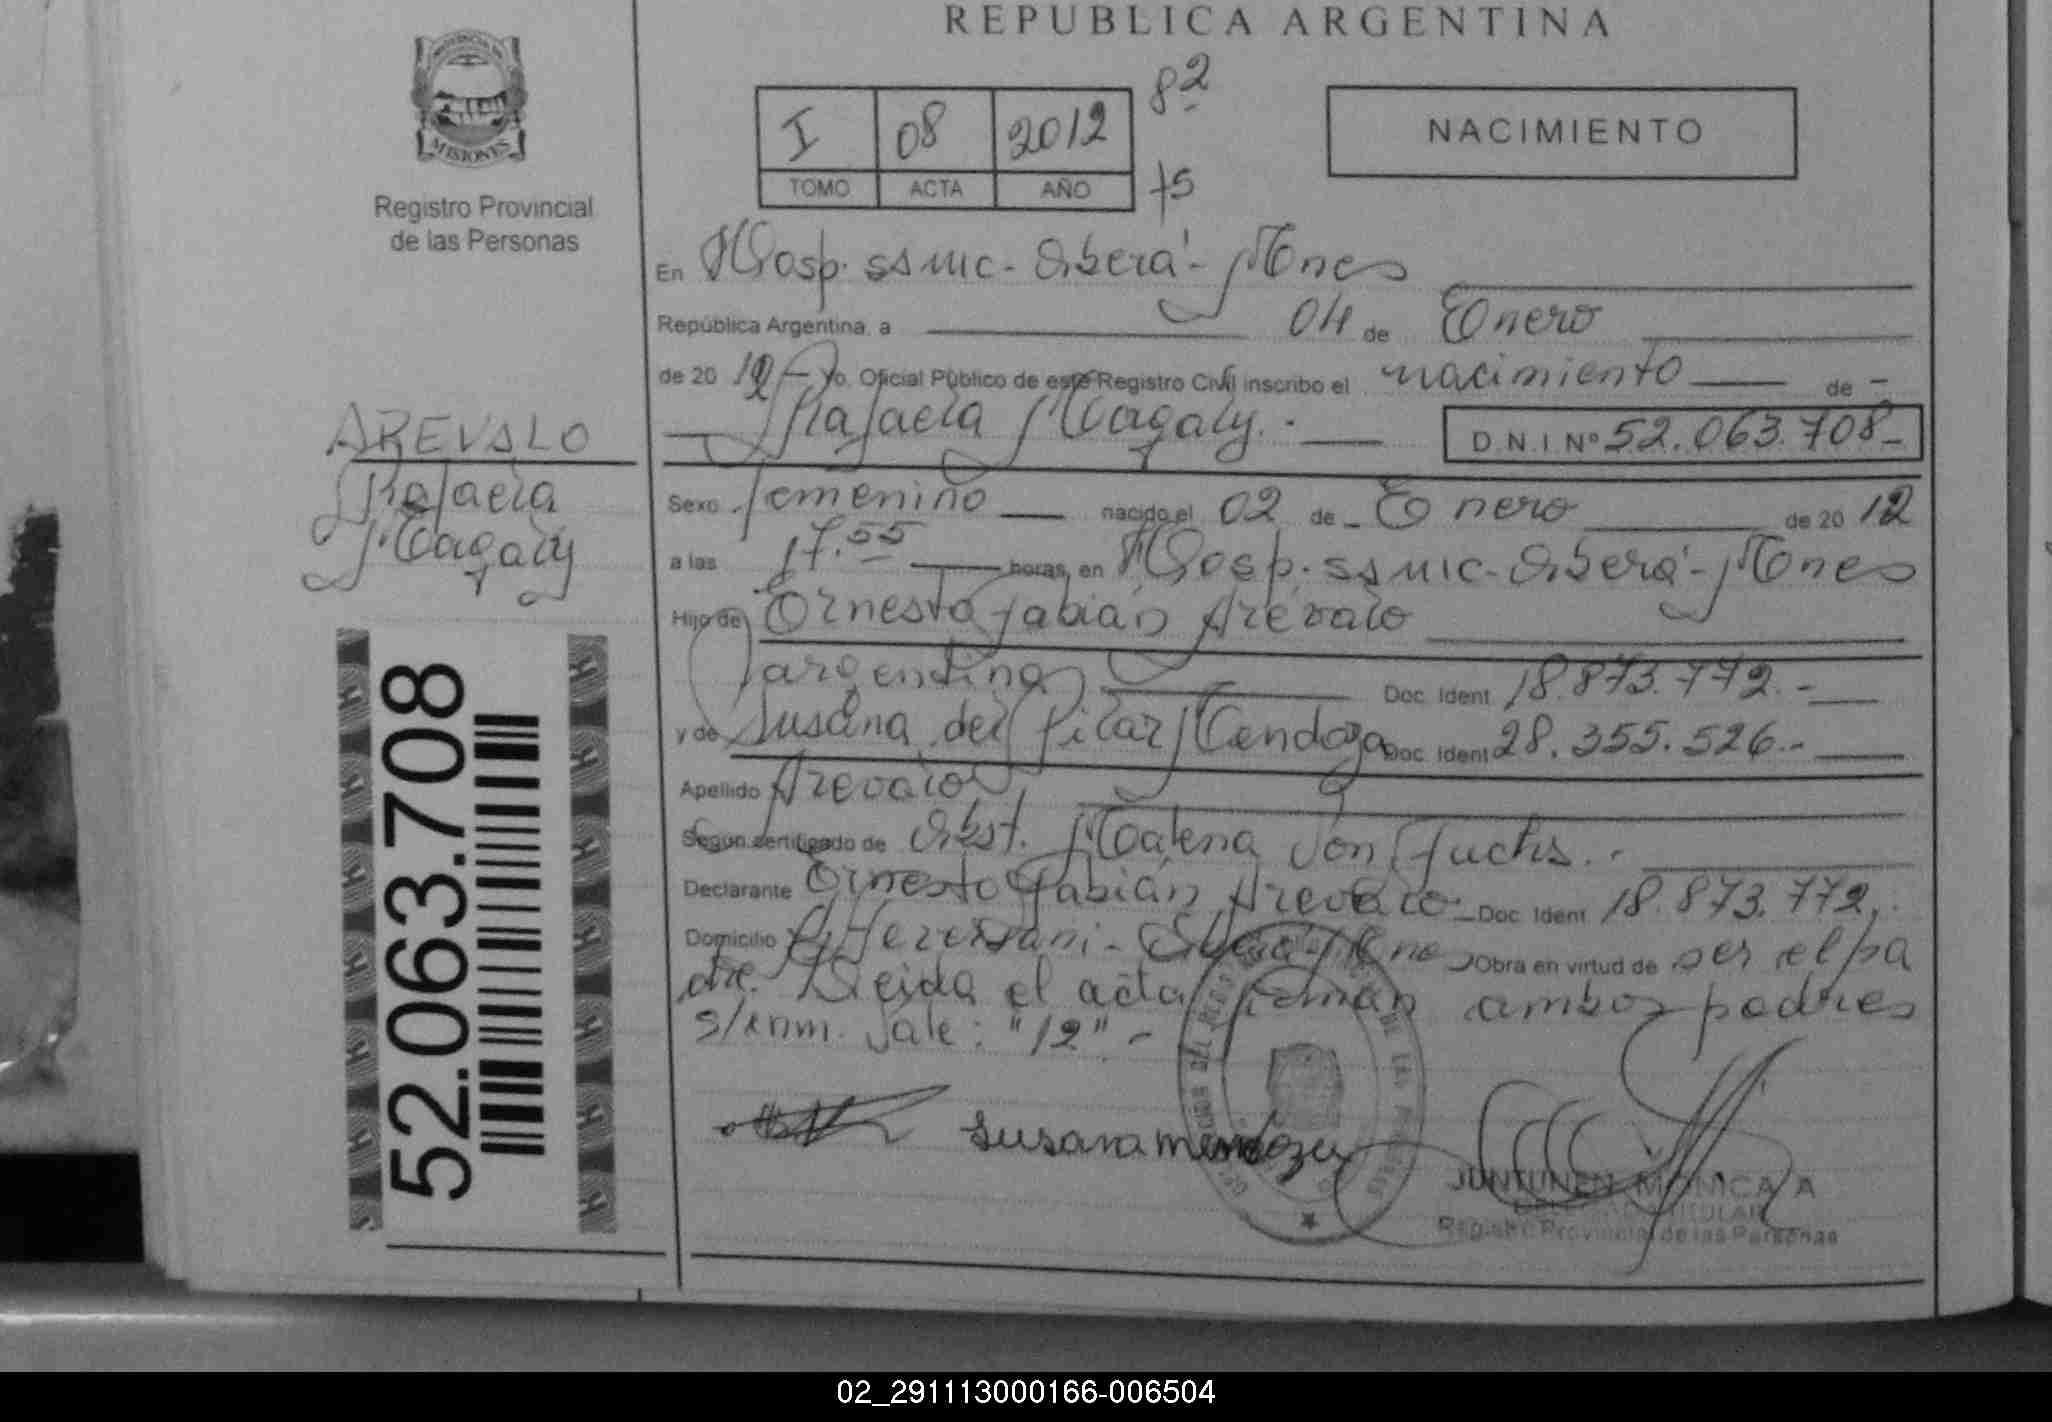 REPUBLICA ARGENTINA
PROVINCIA DE
MISIONES
Registro Provincial
de las Personas
I 08 2012
TOMO ACTA AÑO
82
+5
NACIMIENTO
En Hosp. SSMIC - Oberá - Mnes
República Argentina, a 04 de Enero
de 2012 - Yo, Oficial Público de este Registro Civil inscribo el nacimiento de -
Rafaela Magaly. - D.N.I Nº 52.063.708-
AREVALO
Rafaela
Magaly
Sexo femenino nacido el 02 de - Enero de 2012
a las 17.55 horas, en Hosp. SSMIC - Oberá - Mnes
Hijo de Ernesto Fabián Arévalo
argentino Doc. Ident 18.873.772.-
y de Susana del Pilar Mendoza Doc. Ident 28.355.526.-
Apellido Arevalo
Según certificado de Obst. Malena Von Fuchs.-
Declarante Ernesto Fabián Arevalo - Doc. Ident 18.873.772,
Domicilio Oberá - Mnes Obra en virtud de ser el pa
dre. Leida el acta firman ambos padres
s/enm. Vale: "12".-
Susana Mendoza
JUNTUNEN MONICA A
DELEGADA TITULAR
Registro Provincial de las Personas
52.063.708
02_291113000166-006504